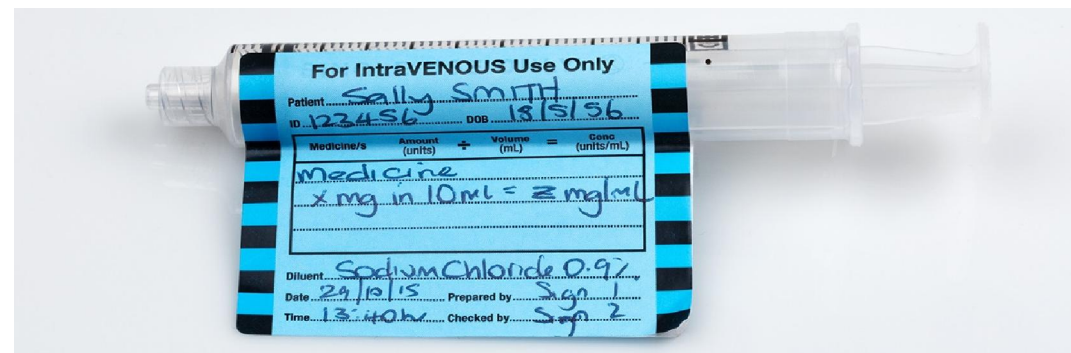 For IntraVENOUS Use Only
Patient Sally SMITH
ID 123456 DOB 18/5/56
Medicine/s Amount (units) ÷ Volume (mL) = Conc (units/mL)
Medicine
x mg in 10ml = z mg/mL
Diluent Sodium Chloride 0.9%
Date 29/10/15 Prepared by Sign 1
Time 13:40hr Checked by Sign 2